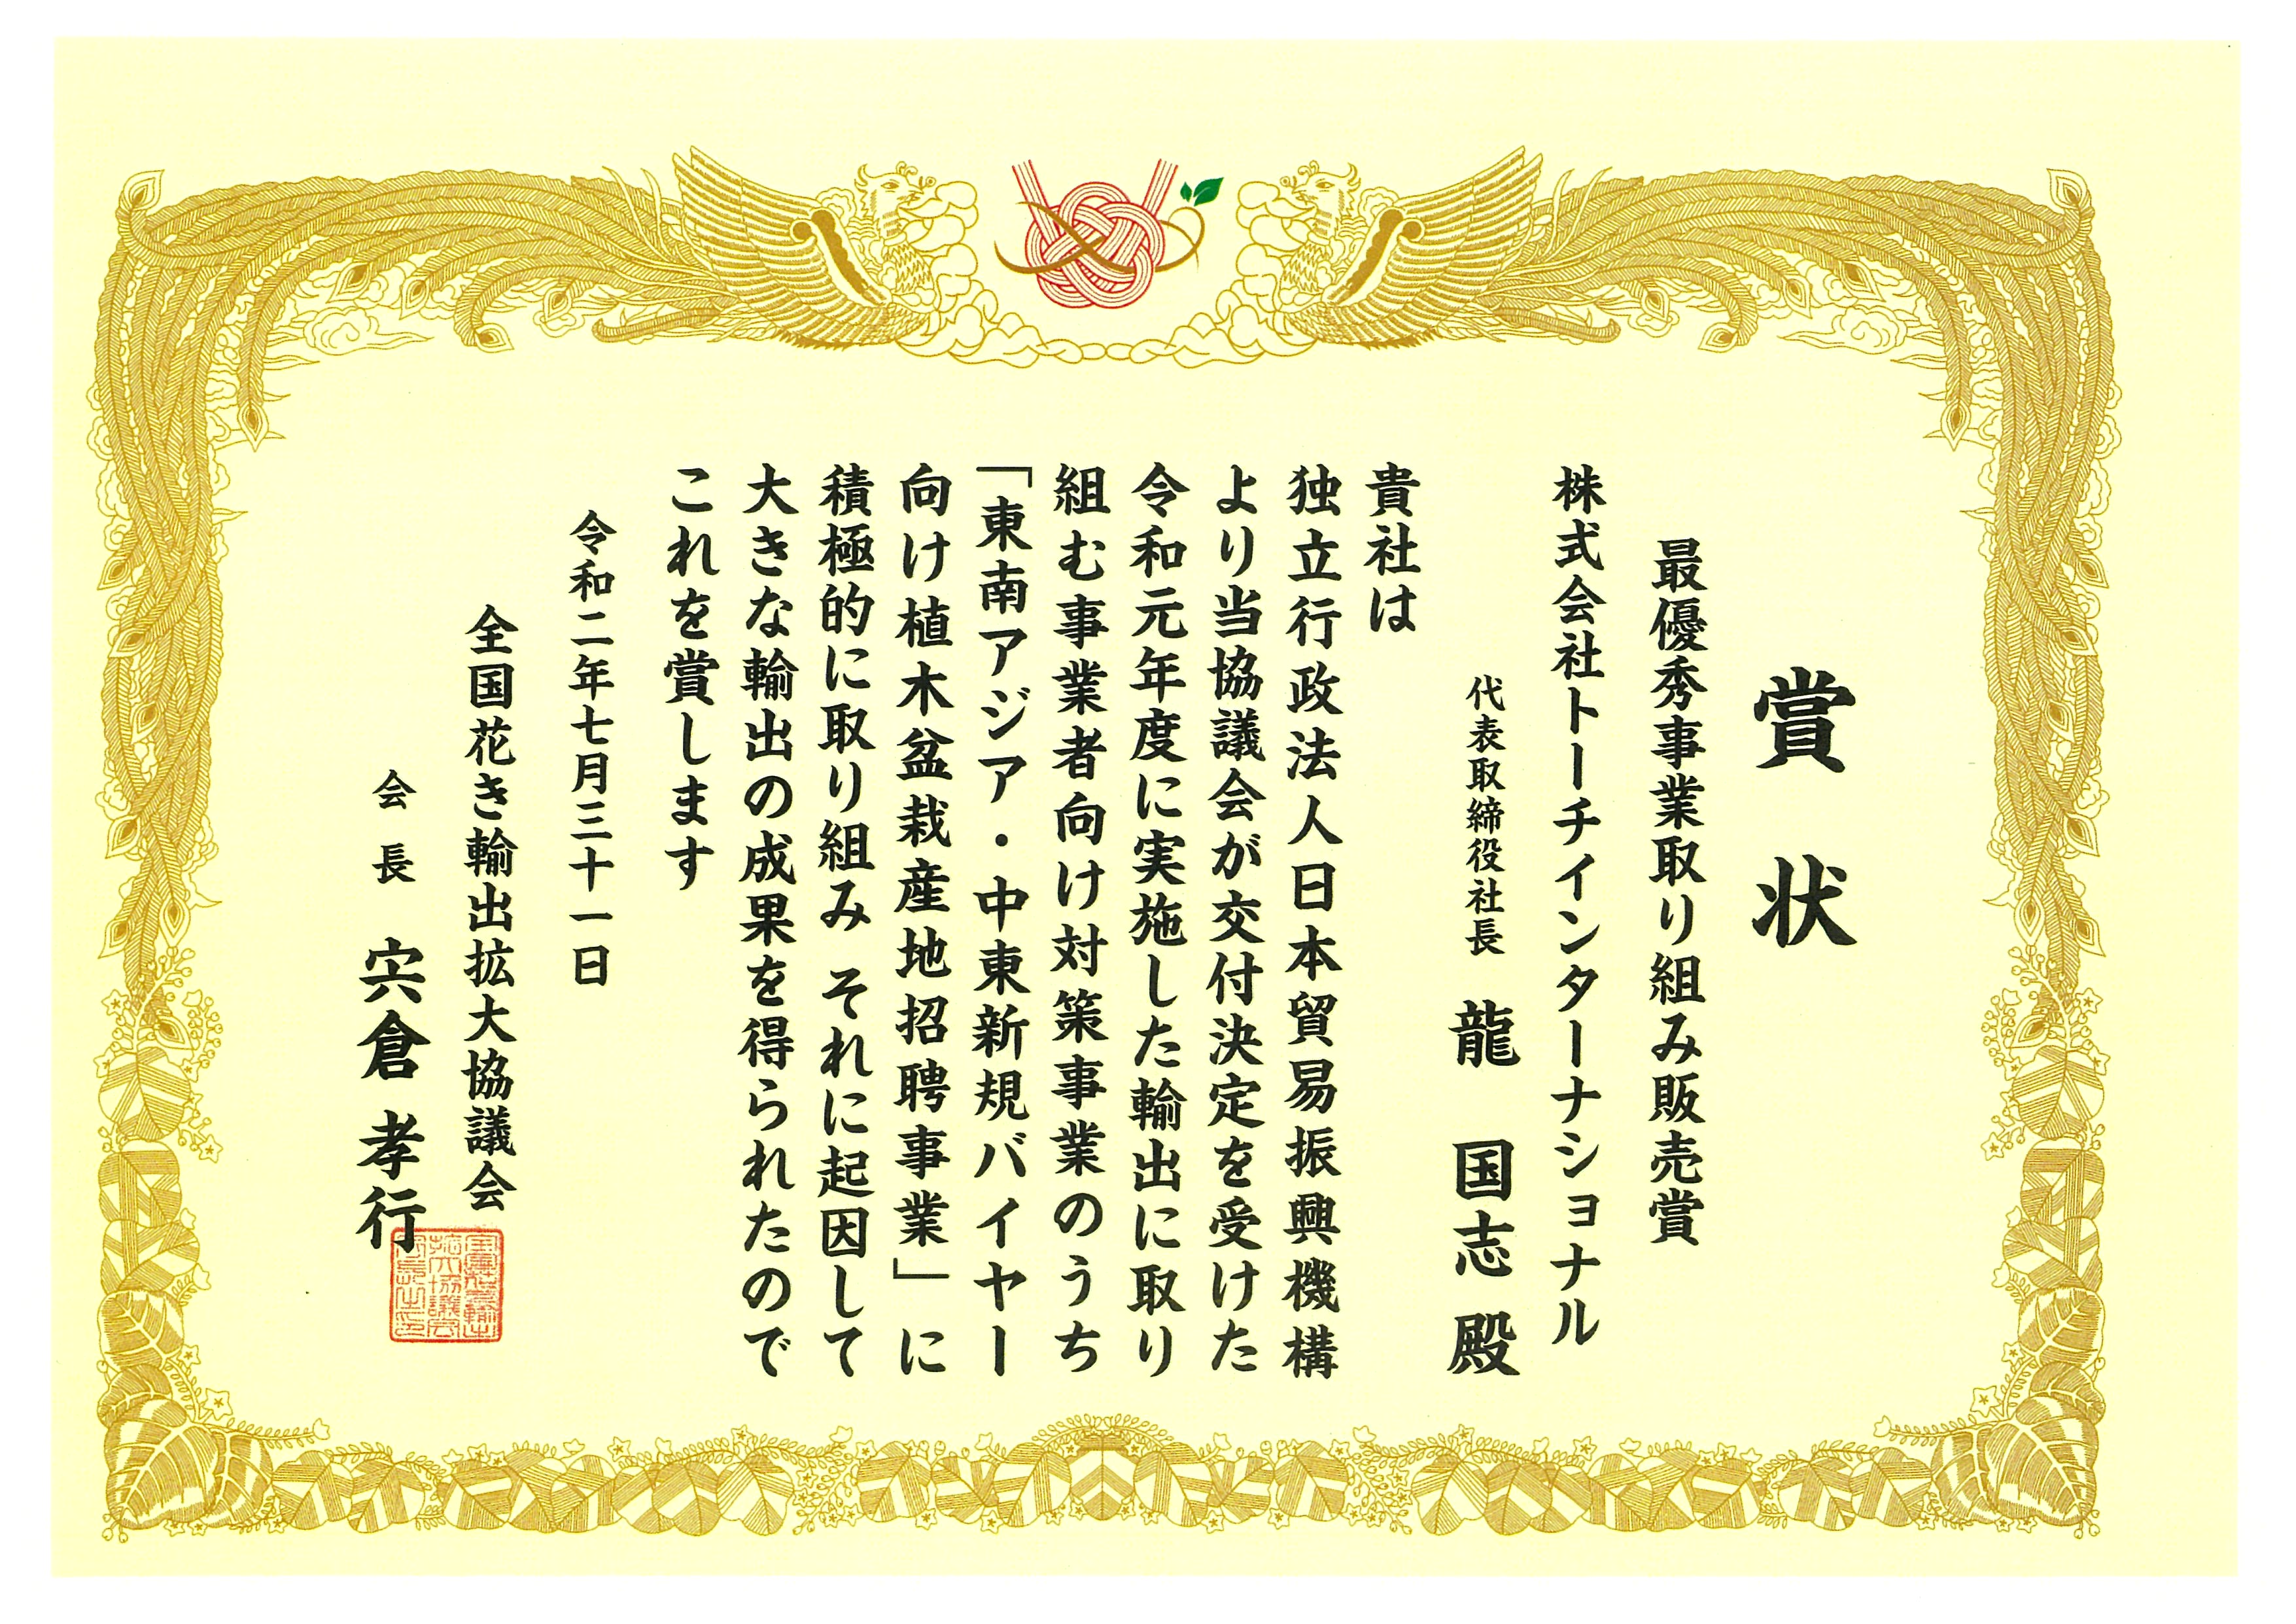 賞状
最優秀事業取り組み販売賞
株式会社トーチインターナショナル
代表取締役社長 龍 国志 殿
貴社は
独立行政法人日本貿易振興機構
より当協議会が交付決定を受けた
令和元年度に実施した輸出に取り
組む事業者向け対策事業のうち
「東南アジア・中東新規バイヤー
向け植木盆栽産地招聘事業」に
積極的に取り組み それに起因して
大きな輸出の成果を得られたので
これを賞します
令和二年七月三十一日
全国花き輸出拡大協議会
会長 宍倉孝行